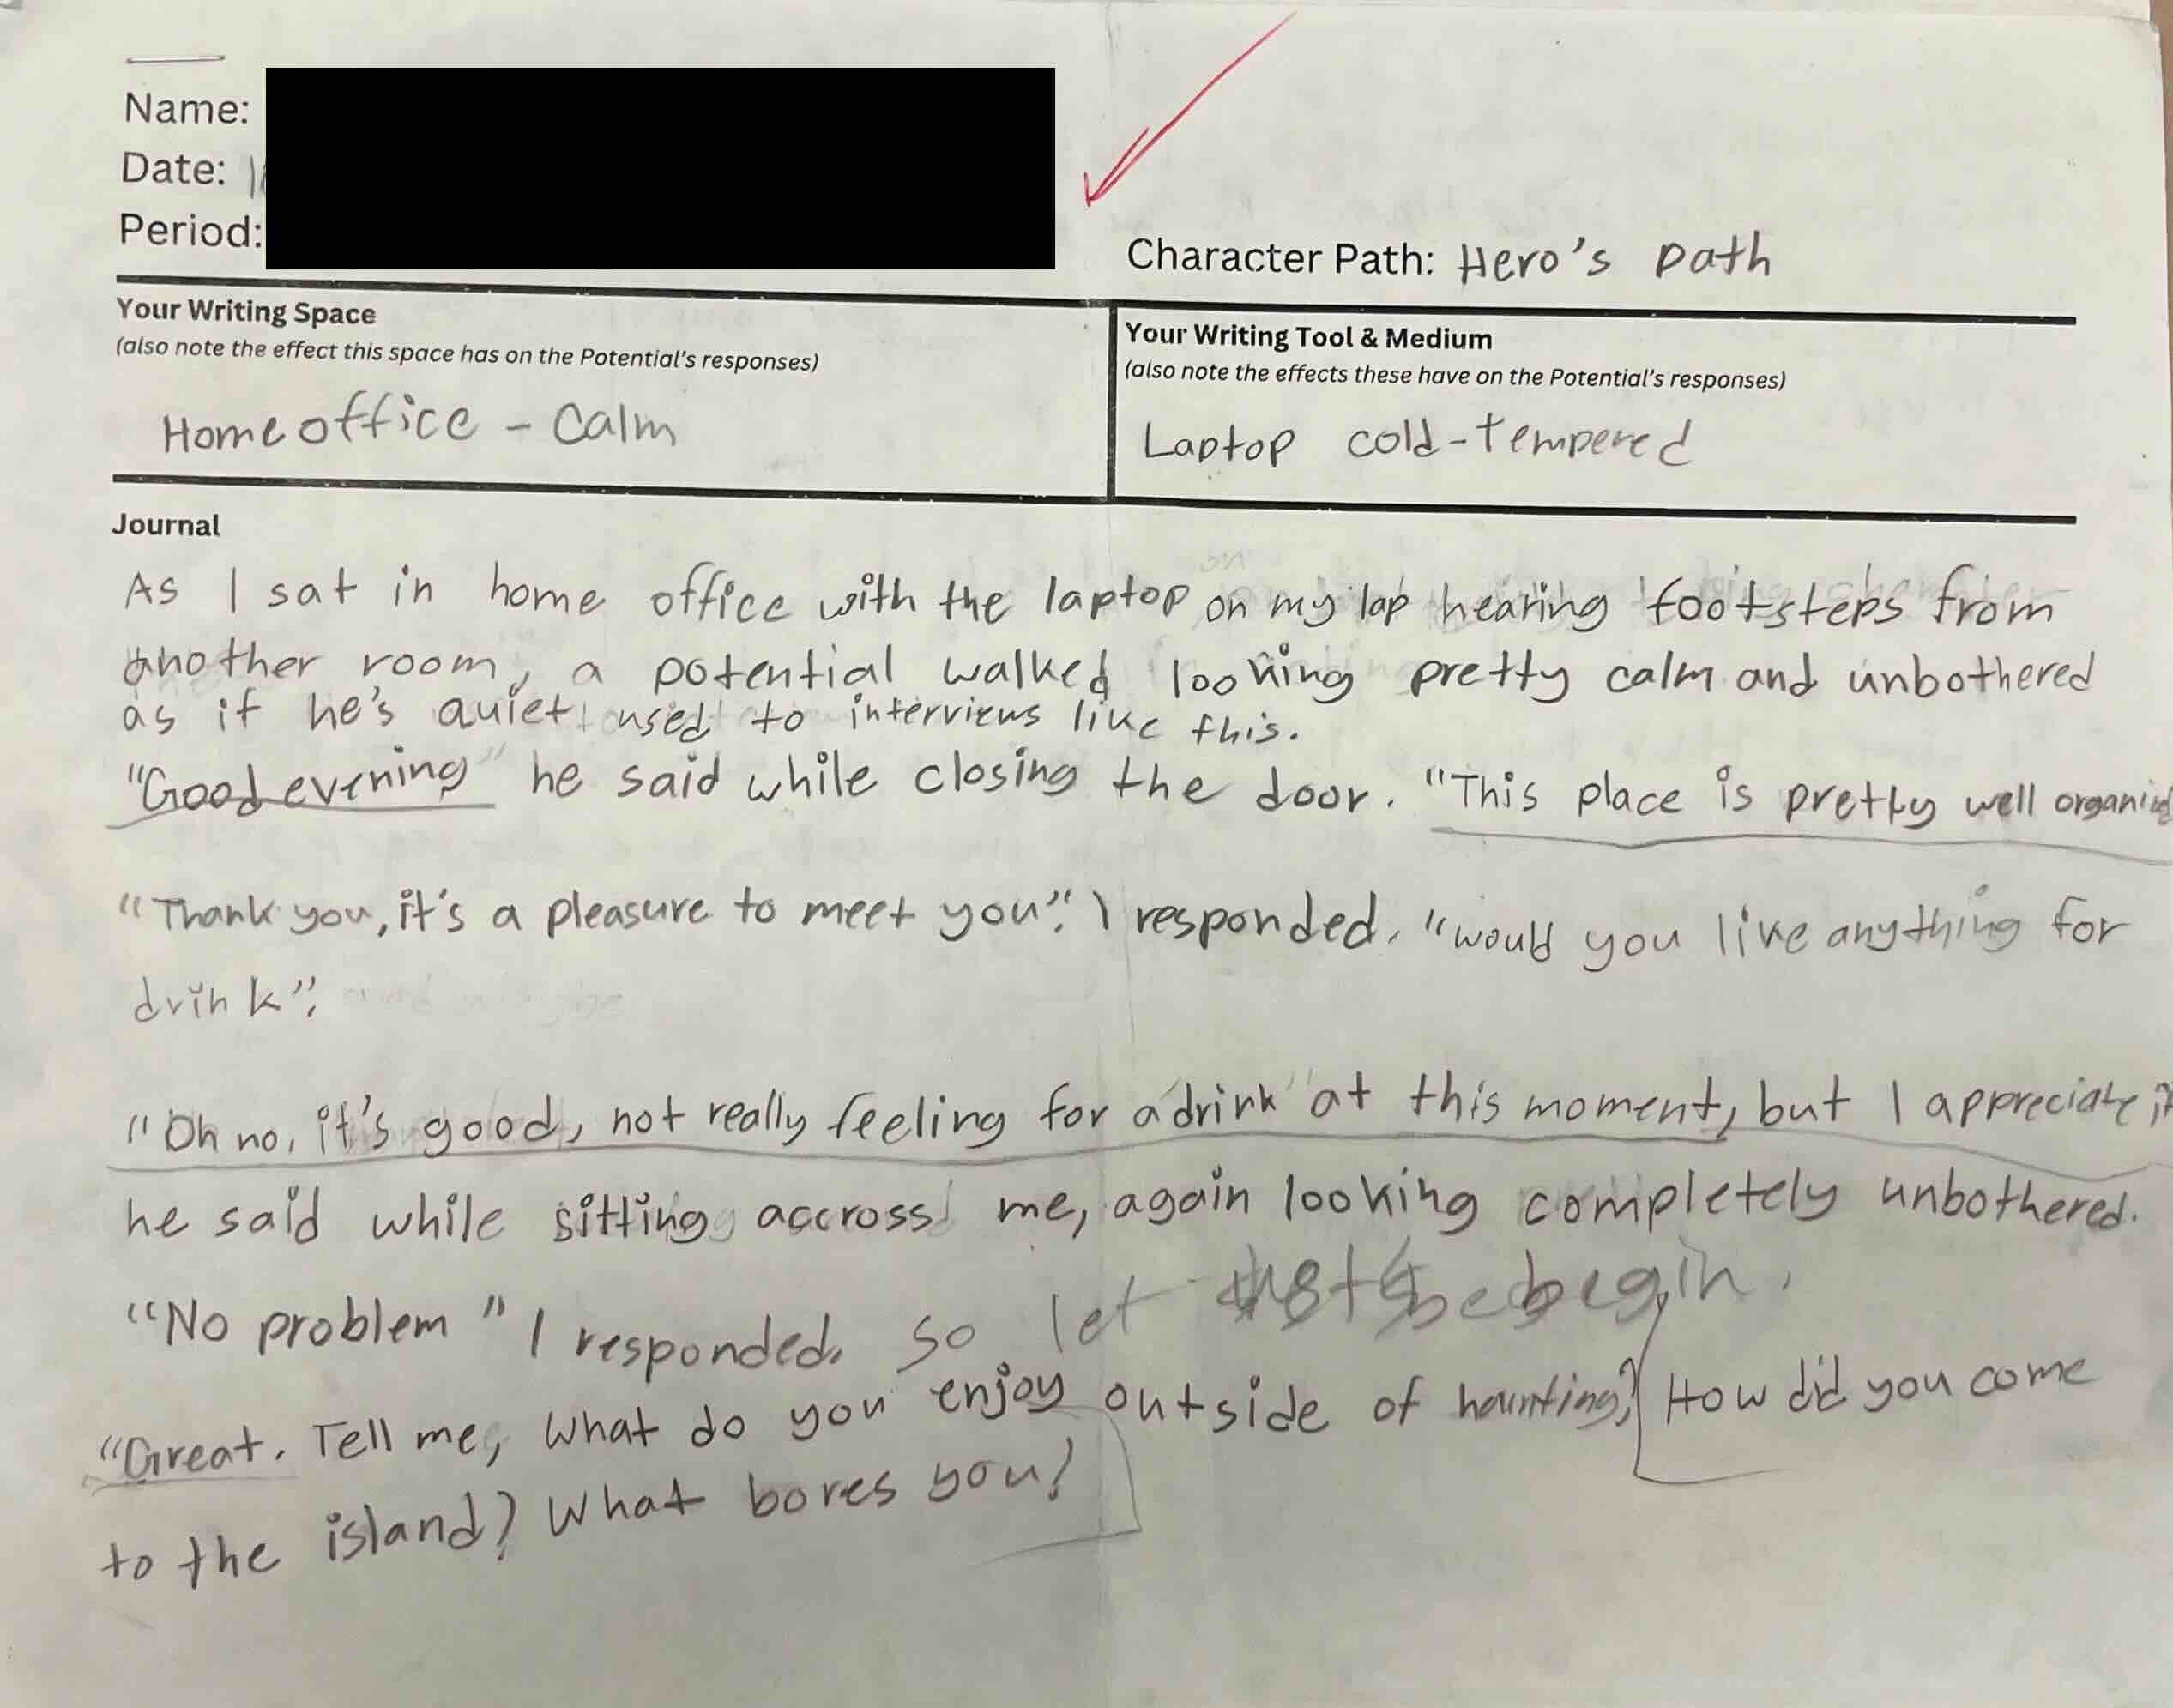 Name:
Date:
Period:
Character Path: Hero's path
Your Writing Space
(also note the effect this space has on the Potential's responses)
Home office - Calm
Your Writing Tool & Medium
(also note the effects these have on the Potential's responses)
Laptop cold-tempered
Journal
As I sat in home office with the laptop on my lap hearing footsteps from
another room, a potential walked looking pretty calm and unbothered
as if he's quiet used to interviews like this.
"Good evening" he said while closing the door. "This place is pretty well
"Thank you, it's a pleasure to meet you". I responded. "would you like anything for
drink".
"Oh no, it's good, not really feeling for a drink at this moment, but I appreciate it
he said while sitting accross me, again looking completely unbothered.
"No problem" I responded. so let begin.
"Great. Tell me, What do you enjoy outside of haunting? How did you come
to the island? What bores you?